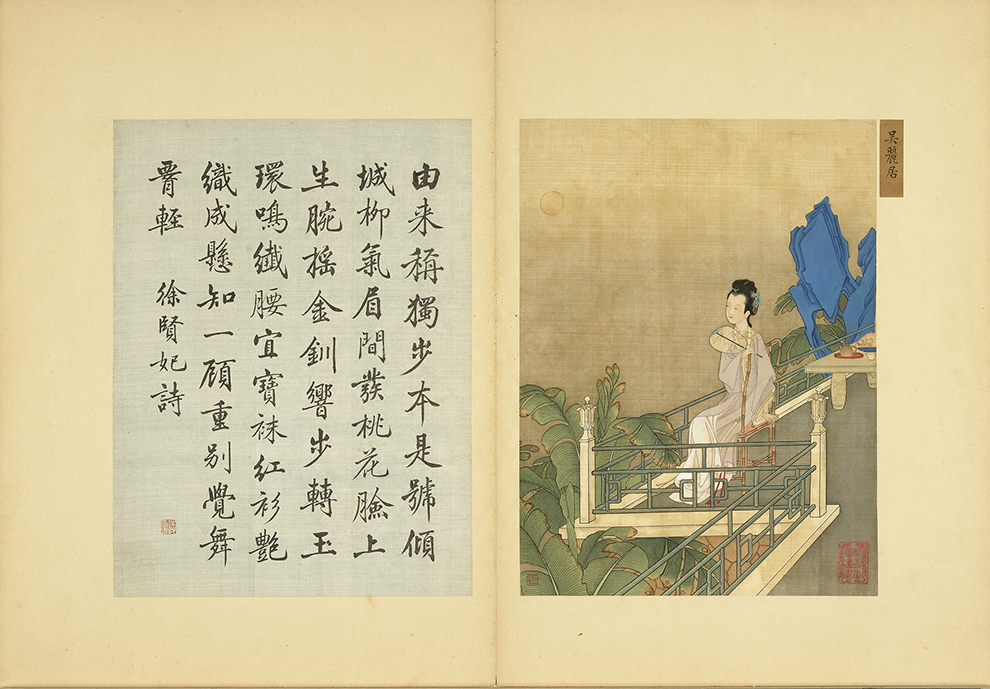 吳麗居
由来稱獨步本是號傾
城柳氣眉間發桃花臉上
生腕搖金釧響步轉玉
環鳴纖腰宜寶袜紅衫艷
織成懸知一顧重別覺舞
腰輕
徐賢妃詩